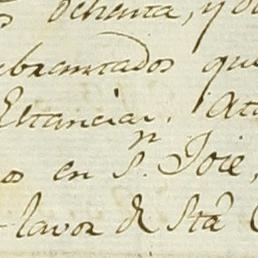 ochenta, y o
ebrantados que
Estancias. Ata
os en Sn. Jose,
lavor de Sta